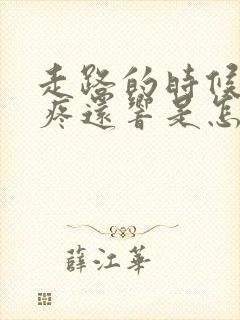 走路的時候
疼還響是怎
薛江華